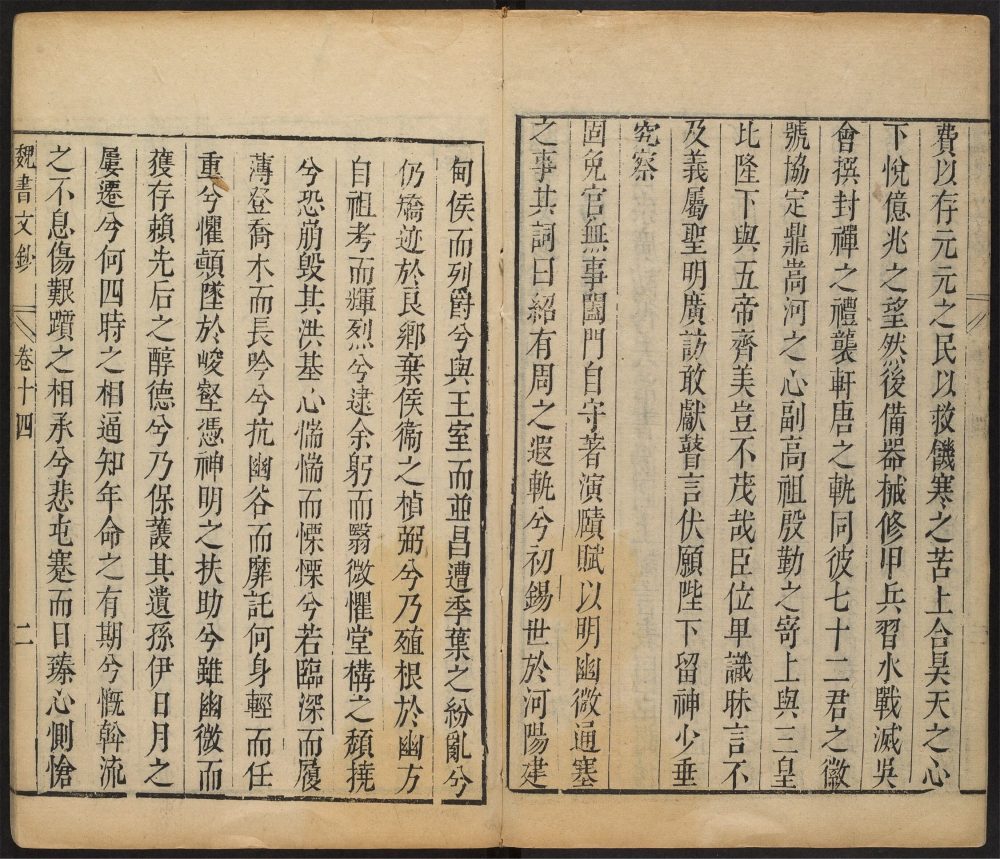 費以存元元之民以救饑寒之苦上合昊天之心
下悅億兆之望然後備器械修甲兵習水戰滅吳
會撰封禪之禮襲軒唐之軌同彼七十二君之徽
號協定鼎嵩河之心副高祖殷勤之寄上與三皇
比隆下與五帝齊美豈不茂哉臣位卑識昧言不
及義屬聖明廣訪敢獻瞽言伏願陛下留神少垂
究察
固免官無事闔門自守著演賾賦以明幽微通塞
之事其詞曰紹有周之遐軌兮初錫世於河陽建
甸侯而列爵兮與王室而並昌遭季葉之紛亂兮
仍矯迹於良鄉棄侯衞之楨弼兮乃殖根於幽方
自祖考而輝烈兮逮余躬而翳微懼堂構之頹撓
兮恐崩毀其洪基心惴惴而慄慄兮若臨深而履
薄登喬木而長吟兮抗幽谷而靡託何身輕而任
重兮懼顛墜於峻壑憑神明之扶助兮雖幽微而
獲存賴先后之醇德兮乃保護其遺孫伊日月之
屢遷兮何四時之相逼知年命之有期兮慨斡流
之不息傷艱躓之相承兮悲屯蹇而日臻心惻愴
魏書文鈔 卷十四 二